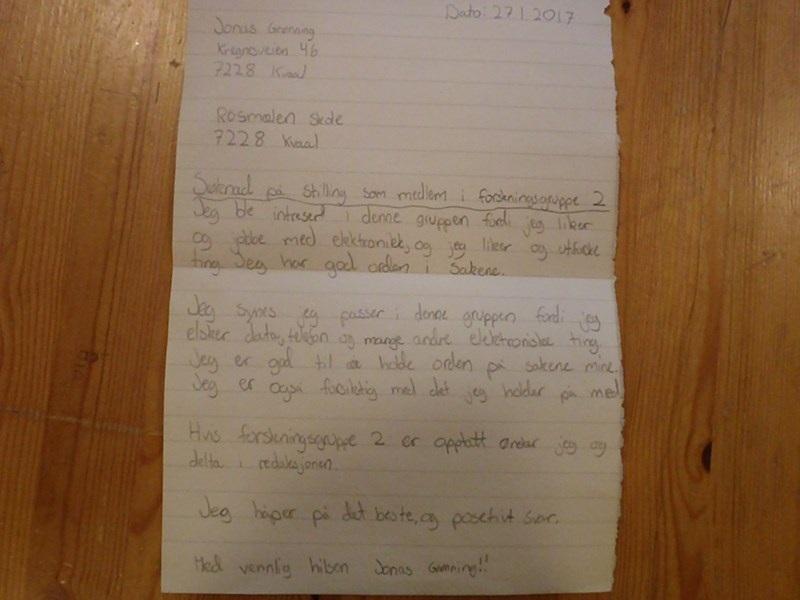 Dato: 27.1.2017
Jonas Grønning
Kregnesveien 46
7228 Kvaal
Rosmælen skole
7228 Kvaal
Søknad på stilling som medlem i forskningsgruppe 2
Jeg ble intresert i denne gruppen fordi jeg liker
og jobbe med elektronikk, og jeg liker og utforske
ting. Jeg har god orden i sakene.
Jeg synes jeg passer i denne gruppen fordi jeg
elsker data, telefon og mange andre elektroniske ting.
Jeg er god til å holde orden på sakene mine.
Jeg er også forsiktig med det jeg holder på med
Hvis forskningsgruppe 2 er opptatt ønsker jeg og
delta i redaksjonen.
Jeg håper på det beste, og posetivt svar.
Med vennlig hilsen Jonas Grønning!!